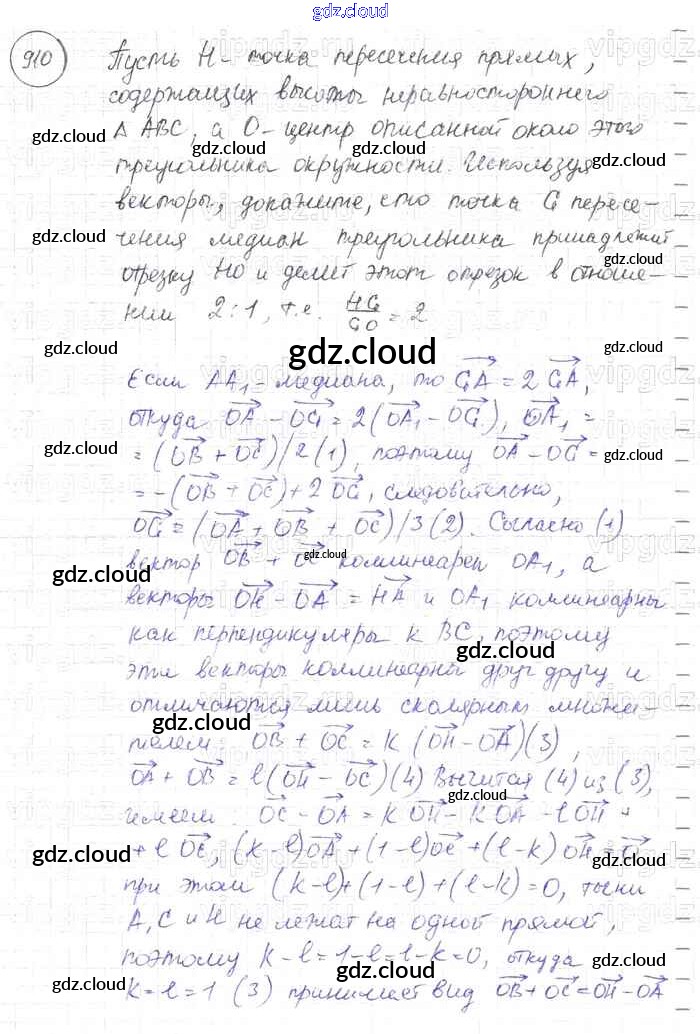 gdz.cloud
910 Пусть H - точка пересечения прямых,
содержащих высоты неравностороннего
△ ABC, а O - центр описанной около этого
треугольника окружности. Используя
векторы, докажите, что точка G пересе-
чения медиан треугольника принадлежит
отрезку HO и делит этот отрезок в отноше-
нии 2:1, т.е. HG/GO = 2
gdz.cloud
Если AA₁ - медиана, то GA = 2 GA,
откуда OA - OG = 2(OA₁ - OG), OA₁ =
= (OB + OC)/2 (1), поэтому OA - OG =
= -(OB + OC) + 2 OG, следовательно,
OG = (OA + OB + OC)/3 (2). Согласно (1)
вектор OB + OC коллинеарен OA₁, а
векторы OH - OA = HA и OA₁ коллинеарны
как перпендикуляры к BC, поэтому
эти векторы коллинеарны друг другу и
отличаются лишь скалярным множи-
телем: OB + OC = K (OH - OA) (3),
OA + OB = l (OH - OC) (4) Вычитая (4) из (3),
имеем: OC - OA = K OH - K OA - l OH +
+ l OC, (K - l) OA + (1 - l) OC + (l - K) OH = 0
при этом (K - l) + (1 - l) + (l - K) = 0, точки
A, C и H не лежат на одной прямой,
поэтому K - l = 1 - l = 1 - K = 0, откуда
K = l = 1 (3) принимает вид OB + OC = OH - OA